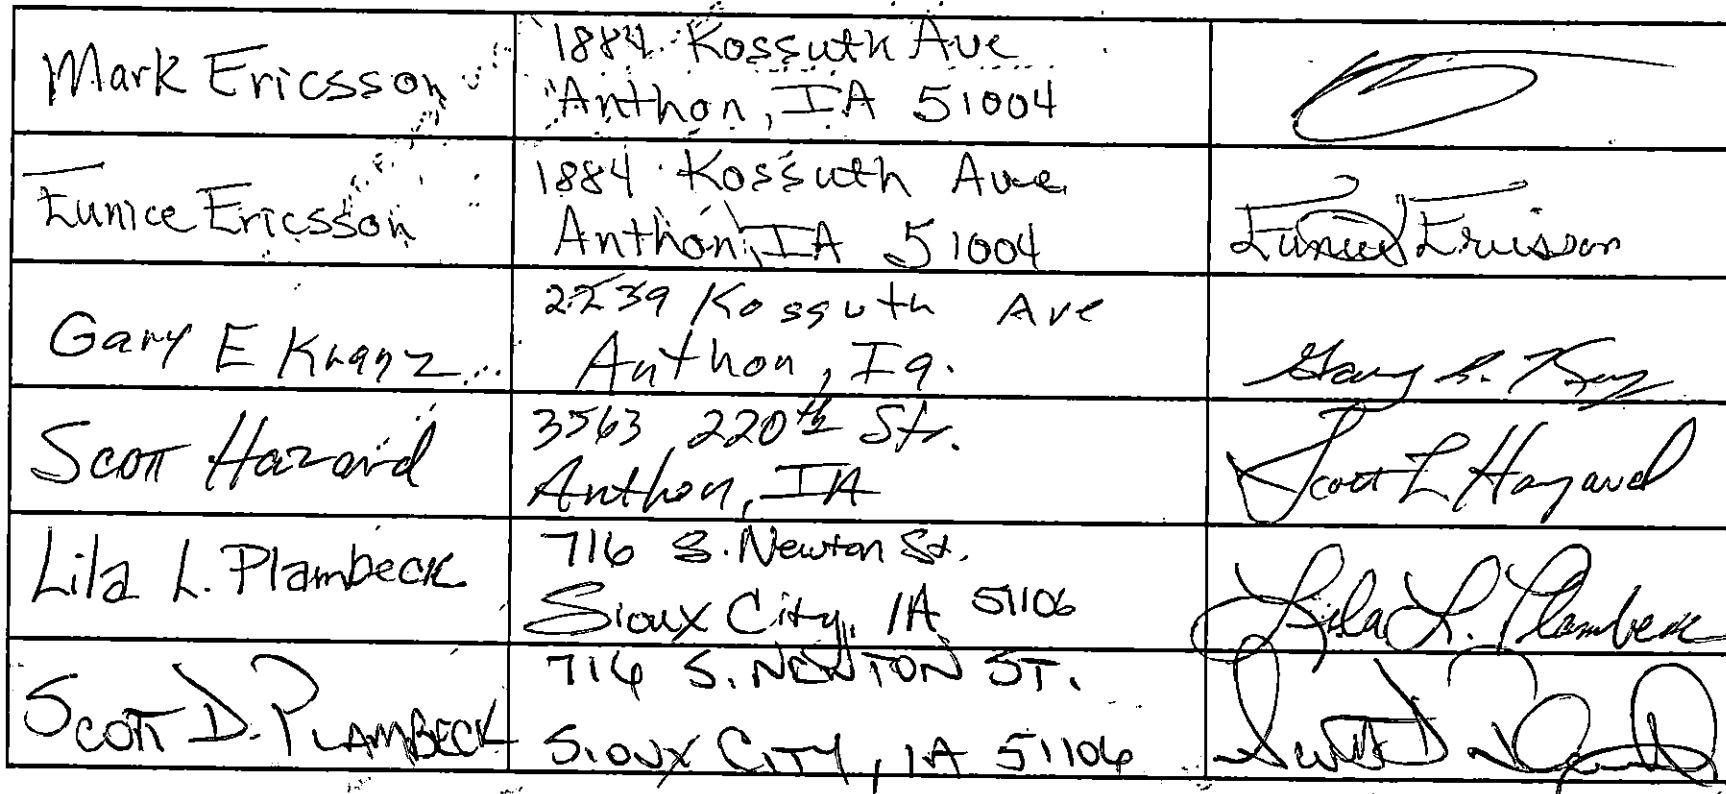 Mark Ericsson
1884 Kossuth Ave
Anthon, IA 51004
Eunice Ericsson
1884 Kossuth Ave
Anthon, IA 51004
Eunice Ericsson
Gary E Kranz
2239 Kossuth Ave
Anthon, Ia.
Gary E. Kranz
Scott Hazard
3563 220th Str.
Anthon, IA
Scott L Hazard
Lila L. Plambeck
716 S. Newton St.
Sioux City, IA 51106
Lila L. Plambeck
SCOTT D. PLAMBECK
716 S. NEWTON ST.
SIOUX CITY, IA 51106